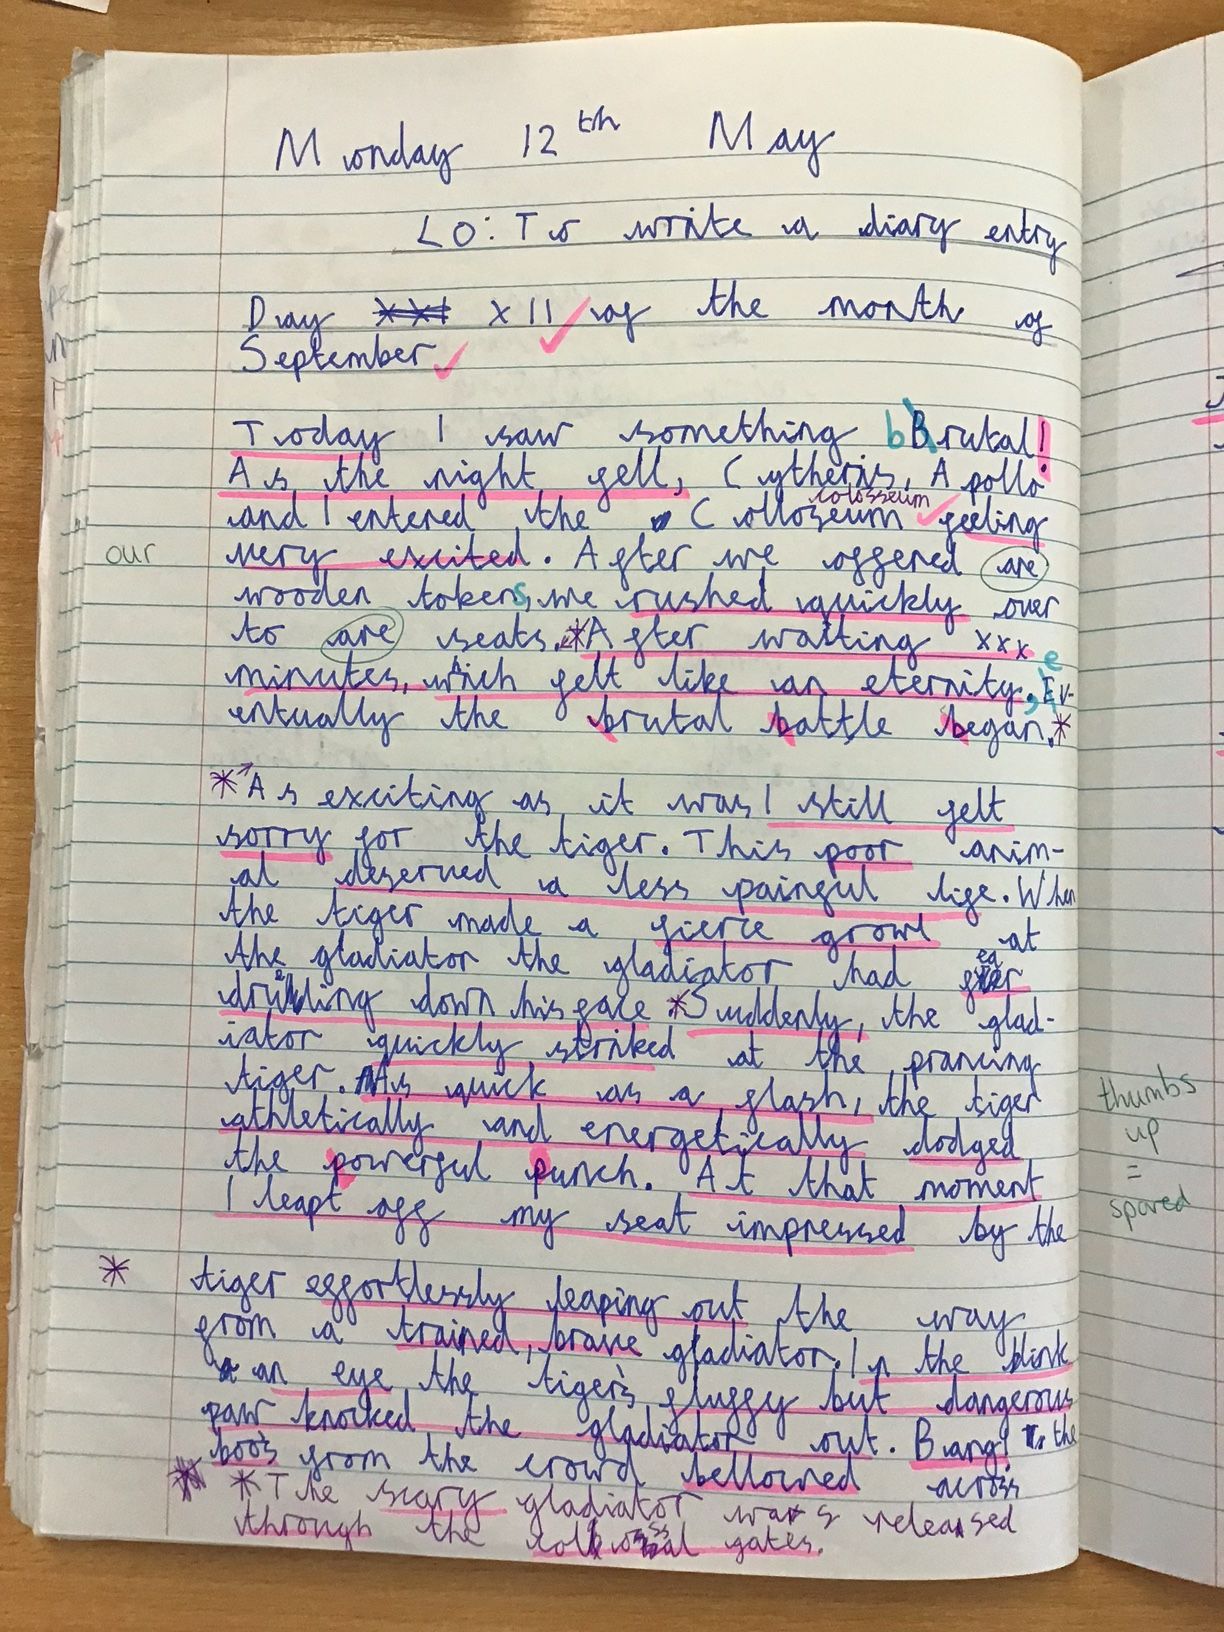 Monday 12th May
LO: To write a diary entry
Day xxi XII of the month of
September
Today I saw something bBrutal!
As the night fell, Cytheris, Apollo
colosseum
and I entered the Colloseum feeling
our
very excited. After we offered are
wooden tokens, we rushed quickly over
to are seats.*After waiting xxx
minutes, which felt like an eternity, eEv-
entually the brutal battle began.*
*As exciting as it was I still felt
sorry for the tiger. This poor anim-
al deserved a less painful life. When
the tiger made a fierce growl at
the gladiator the gladiator had fear
dribbling down his face *Suddenly, the glad-
iator quickly striked at the prancing
tiger. As quick as a flash, the tiger
athletically and energetically dodged
the powerful punch. At that moment
I leapt off my seat impressed by the
thumbs
up
=
spared
* tiger effortlessly leaping out the way
from a trained, brave gladiator. In the blink
of an eye the tiger's fluffy but dangerous
paw knocked the gladiator out. Bang! The
boo's from the crowd bellowed across
*The scary gladiator was released
through the colossal gates.